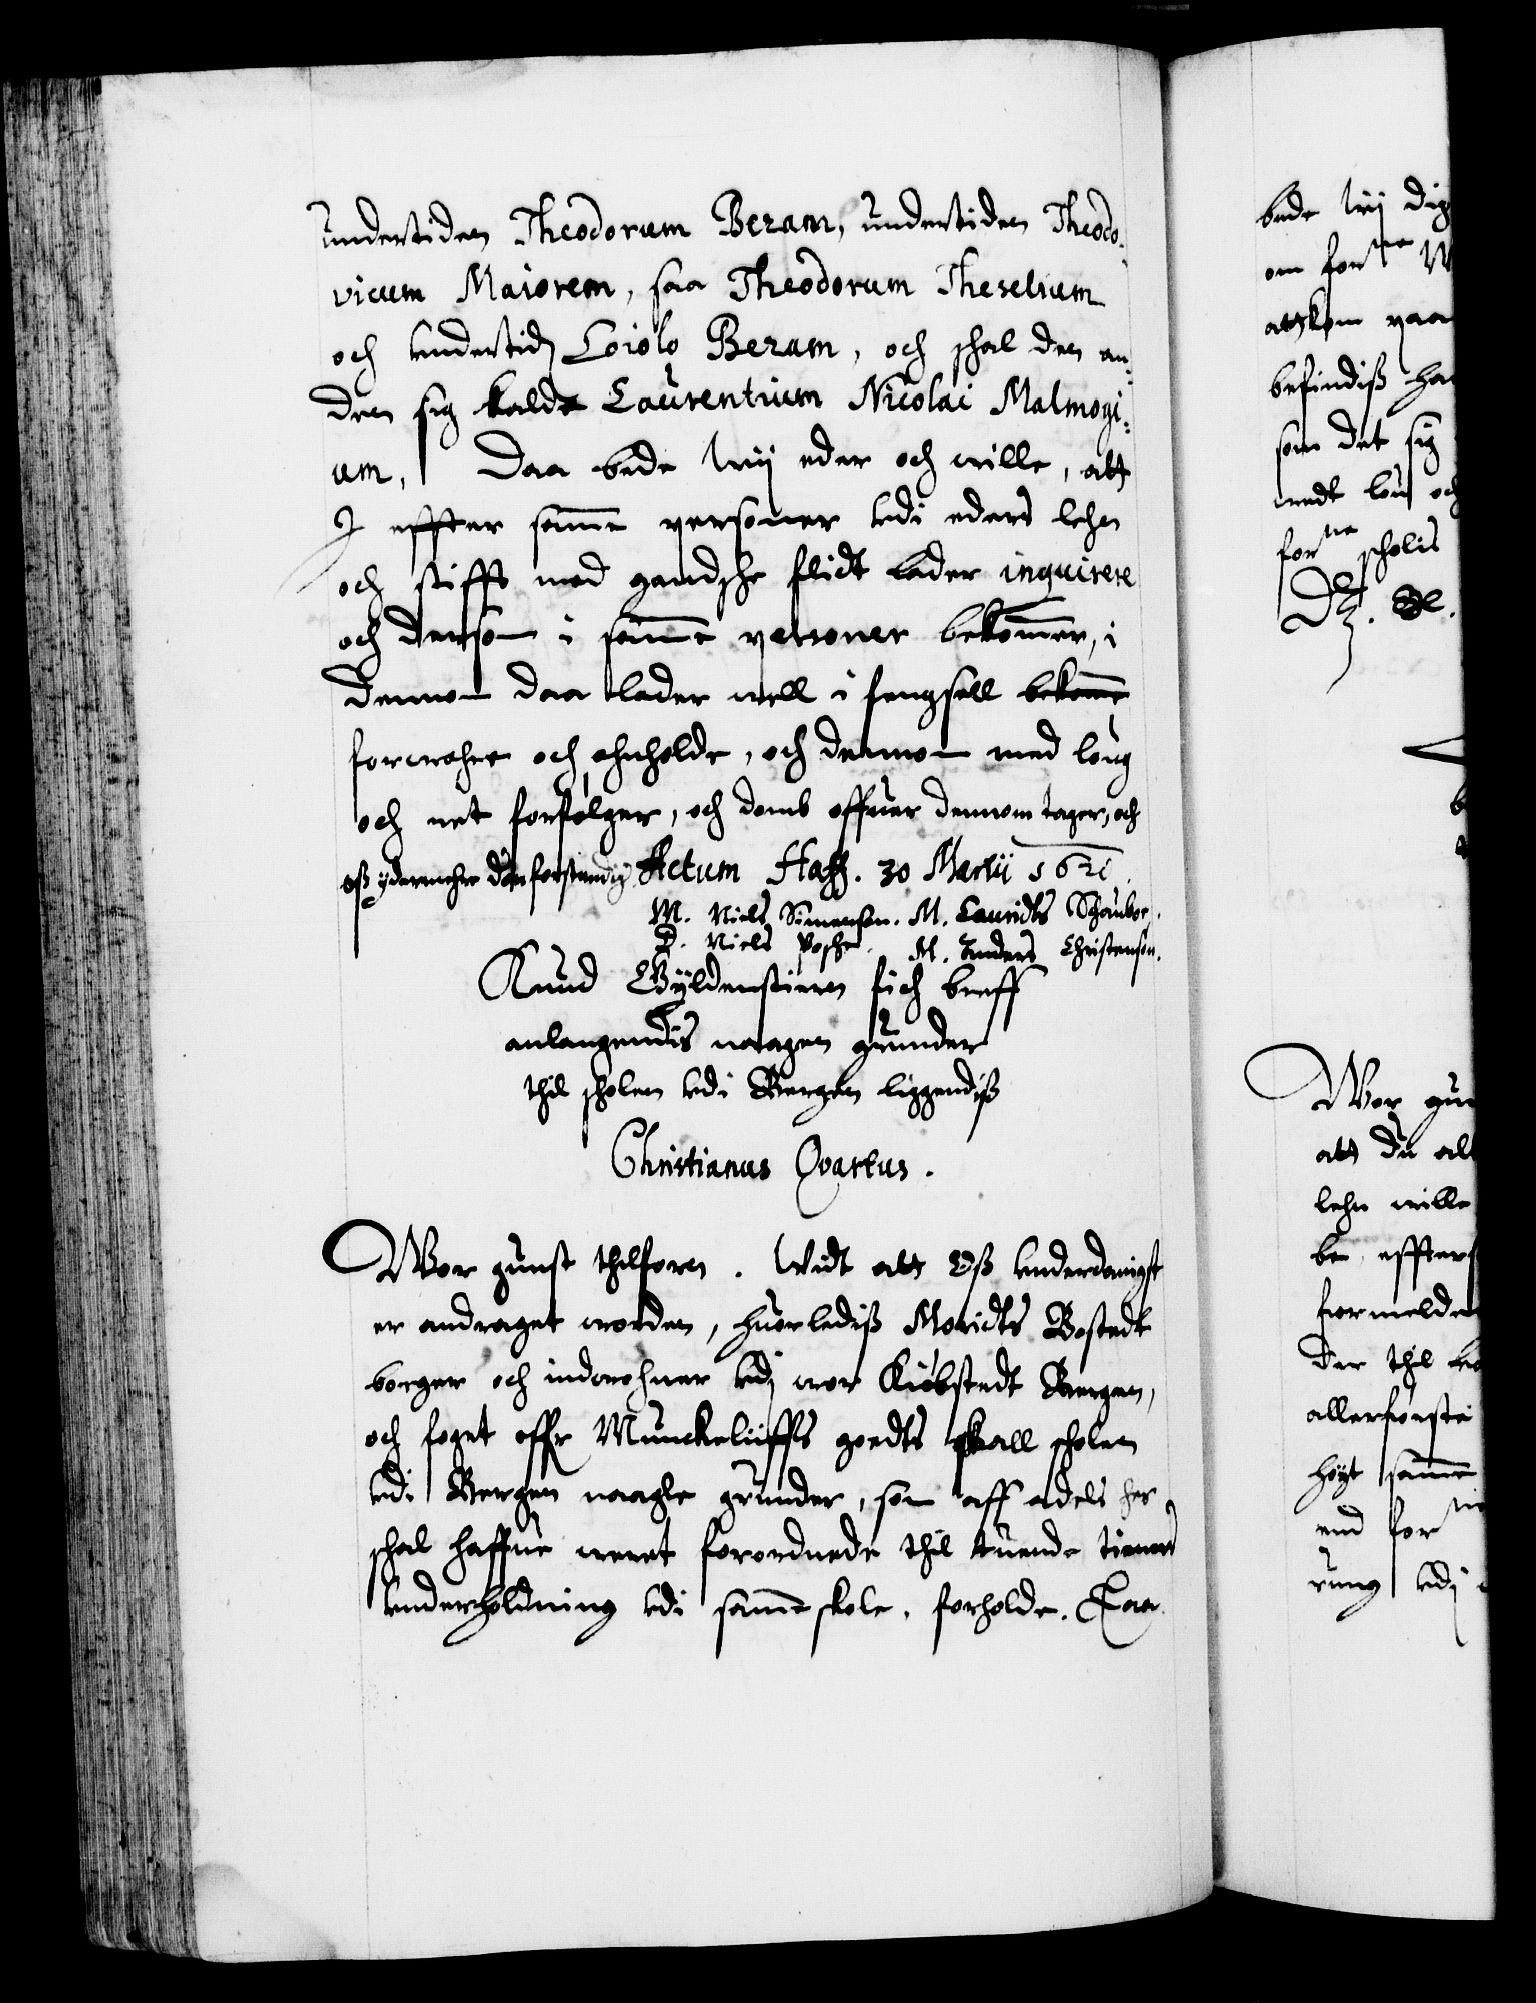 undertiden Theodorum Bezam, undertiden Theodo-
ricum Maiorem, saa Theodorum Theselium
och undertid Loiolo Bezam, och schal den an-
den sig kalde Laurentium Nicolai Malmogi-
um, Daa bede wij eder och wille, att
I effter samme personer udi eders lehn
och stifft med gandsche flidt lader inquirere
och dersom i samme personer bekommer, i
dennom daa lader well i fengsell bekomme
forwahre och eholde, och dennom med loug
och ret forfølger, och domb offuer dennom tager, och
oß ydermehre forstendig. Actum Haff. 30 Martij 1621.
M. Niels Simensen. M. Lauridts Schauboe.
D. Niels Posche. M. Anders Christensøn.
Knud Gyldenstiern fich breff
anlangendis naagen grunder
thil scholen udi Bergen liggendiß
Christianus Qvartus.
Wor gunst thilforn. Widt att Oß underdanigst
er andraget worden, huorlediß Moridts Bostedt
borger och indwohner udj wor Kiøbstedt Bergen,
och foget offr Munckeliffs goedts skall scholen
udi Bergen naagle grunder, som aff adels her
schal haffue weret forordnede thil tuende tieners
underholdning udi samme skole, forholde. Daa
bede wij dig
om for ne
attkom paa
befindiß ha
som det sig
medt lou och
for ne scholis
Wor gun
att du al
lehn wille
be effters
formelde
der thil
allerførste
høyt samme
end for ne
ring udj